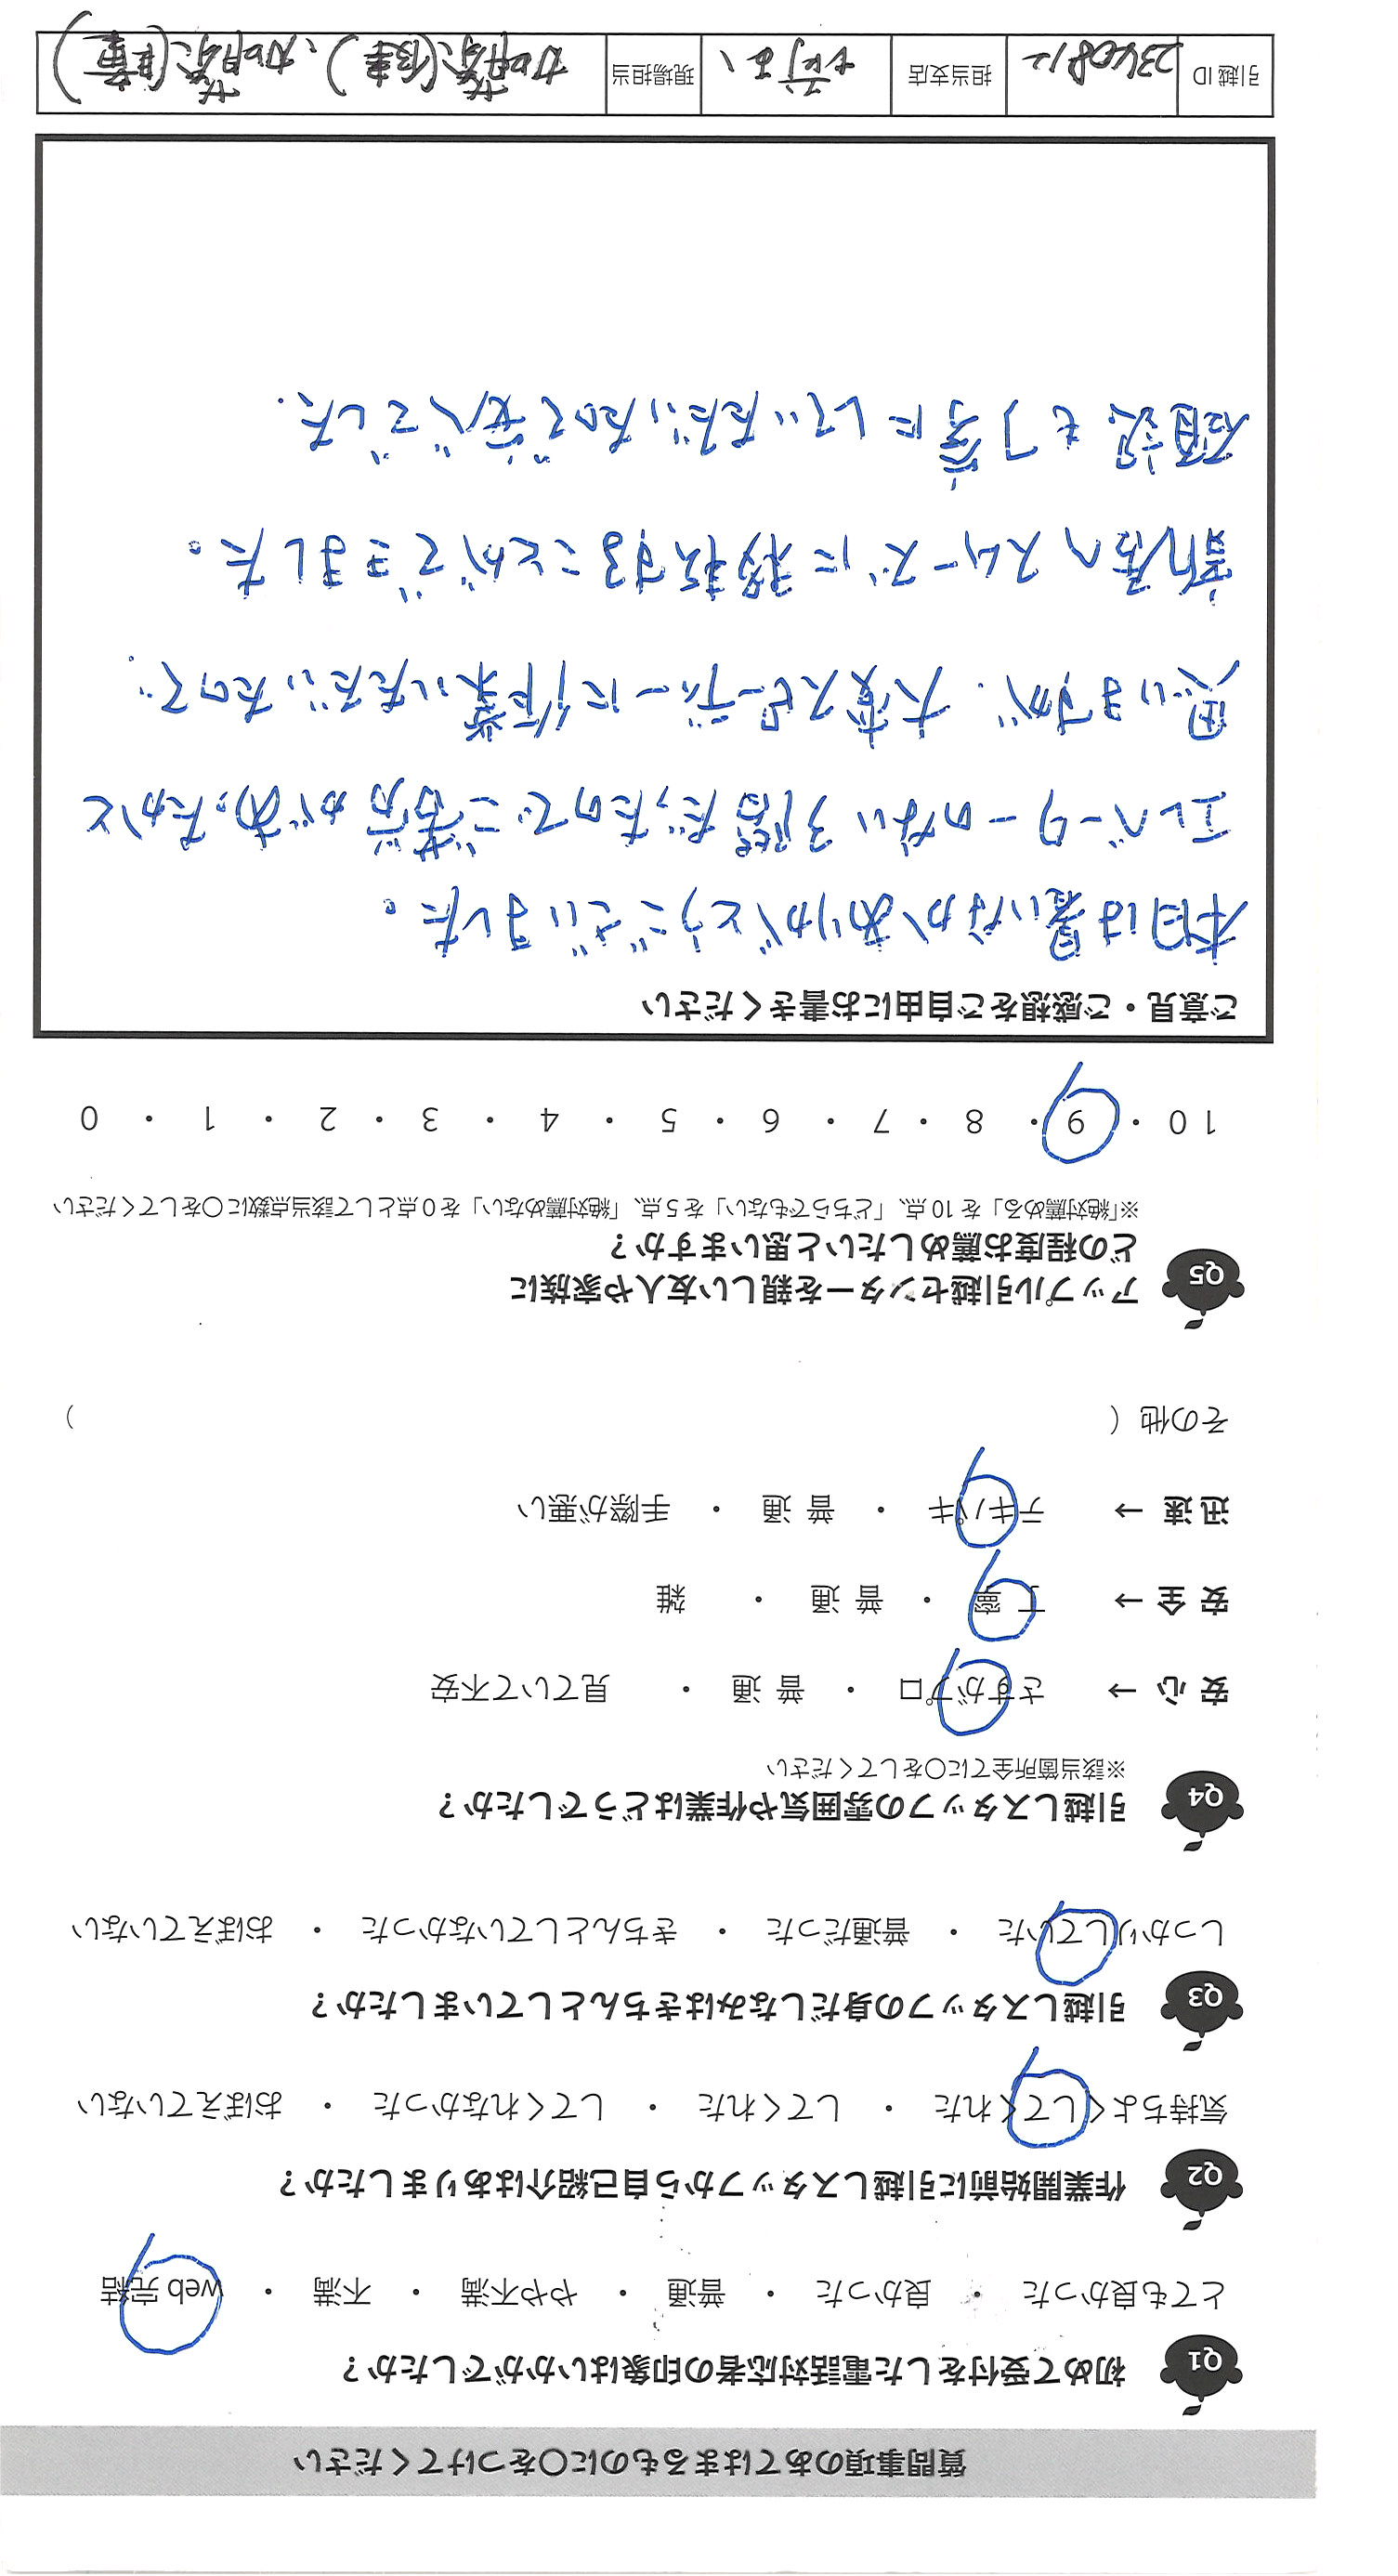 質問事項のあてはまるものに〇をつけてください
Q1 初めて受付をした電話対応者の印象はいかがでしたか？
とても良かった ・ 良かった ・ 普通 ・ やや不満 ・ 不満 ・ web 完結
Q2 作業開始前に引越しスタッフから自己紹介はありましたか？
気持ちよくしてくれた ・ してくれた ・ してくれなかった ・ おぼえていない
Q3 引越しスタッフの身だしなみはきちんとしていましたか？
しっかりしていた ・ 普通だった ・ きちんとしていなかった ・ おぼえていない
Q4 引越しスタッフの雰囲気や作業はどうでしたか？
※該当箇所全てに〇をしてください
安 心 → さすがプロ ・ 普 通 ・ 見ていて不安
安 全 → 丁 寧 ・ 普 通 ・ 雑
迅 速 → テキパキ ・ 普 通 ・ 手際が悪い
その他（ ）
Q5 アップル引越センターを親しい友人や家族に
どの程度お薦めしたいと思いますか？
※「絶対薦める」を 10 点、「どちらでもない」を 5 点、「絶対薦めない」を 0 点として該当点数に〇をしてください
10 ・ 9 ・ 8 ・ 7 ・ 6 ・ 5 ・ 4 ・ 3 ・ 2 ・ 1 ・ 0
ご意見・ご感想をご自由にお書きください
本日は暑いなかありがとうございました。
エレベーターのない3階だったのでご苦労があったかと
思いますが、大変スピーディーに作業いただいたので、
新居へスムーズに移転することができました。
確認も丁寧にしていただいたので安心でした.
引越 ID 2340812 担当支店 現場担当